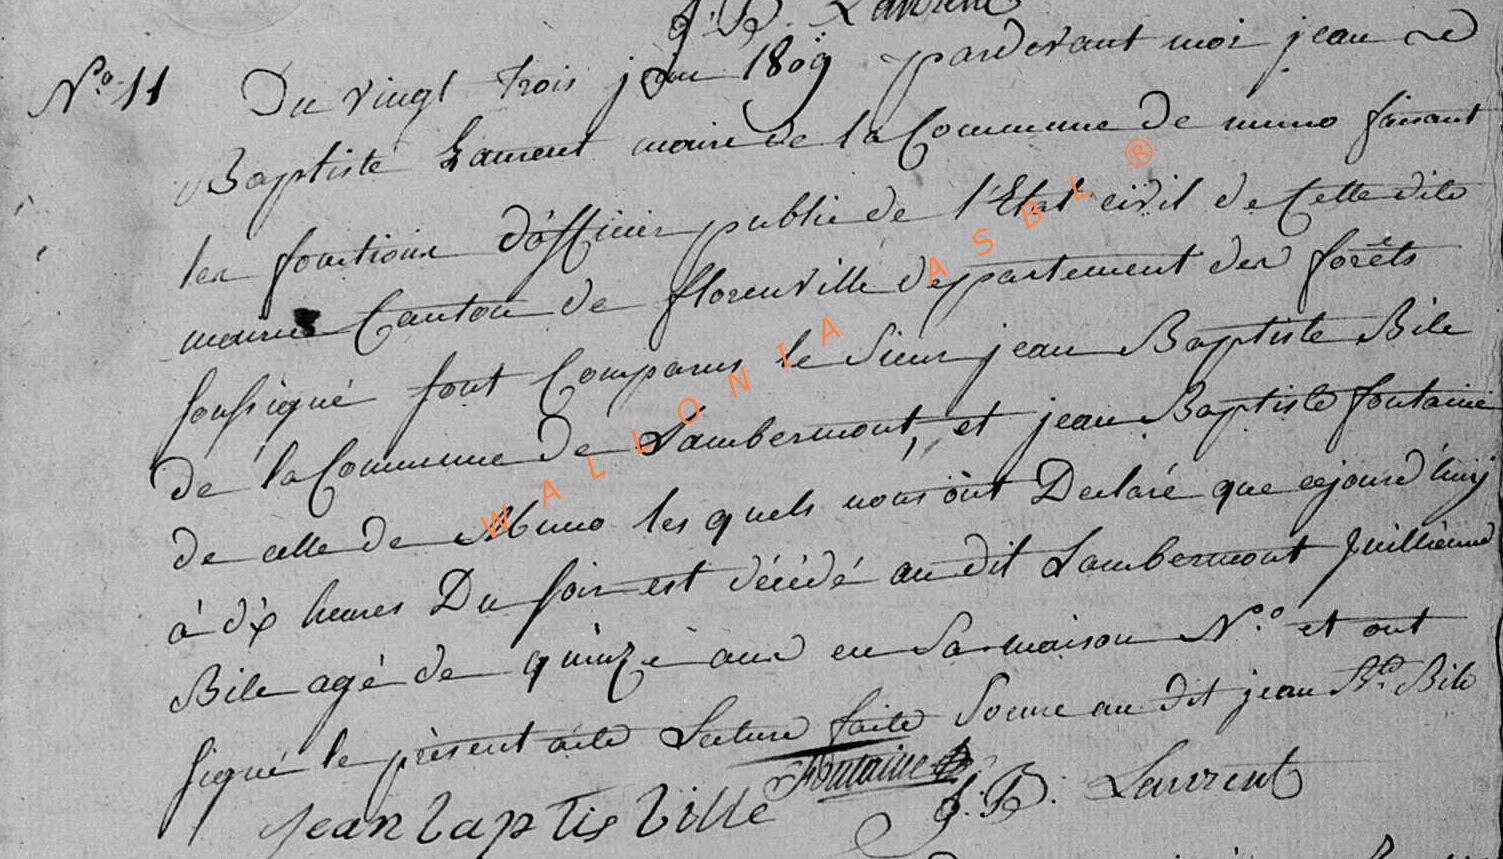 J. B. Laurent
N.o 11 Du vingt trois juin 1809 pardevant moi jean
Baptiste Laurent maire de la Commune de muno faisant
les fonctions d'officier public de l'Etat civil de Cette dite
mairie Canton de florenville departement des forêts
soussigné sont Comparus le Sieur jean Baptiste Bile
de la Commune de Lambermont, et jean Baptiste fontaine
de celle de Muno les quels nous ont Declaré que cejourd'huy
à dix heures Du soir est décédé au dit Lambermont
Bile agé de quinze ans en Sa maison N.o et ont
signé le présent acte Lecture faite Soeure au dit jean Bte Bile
Fontaine
jean baptis bille J. B. Laurent
WALLONIA ASBL ®